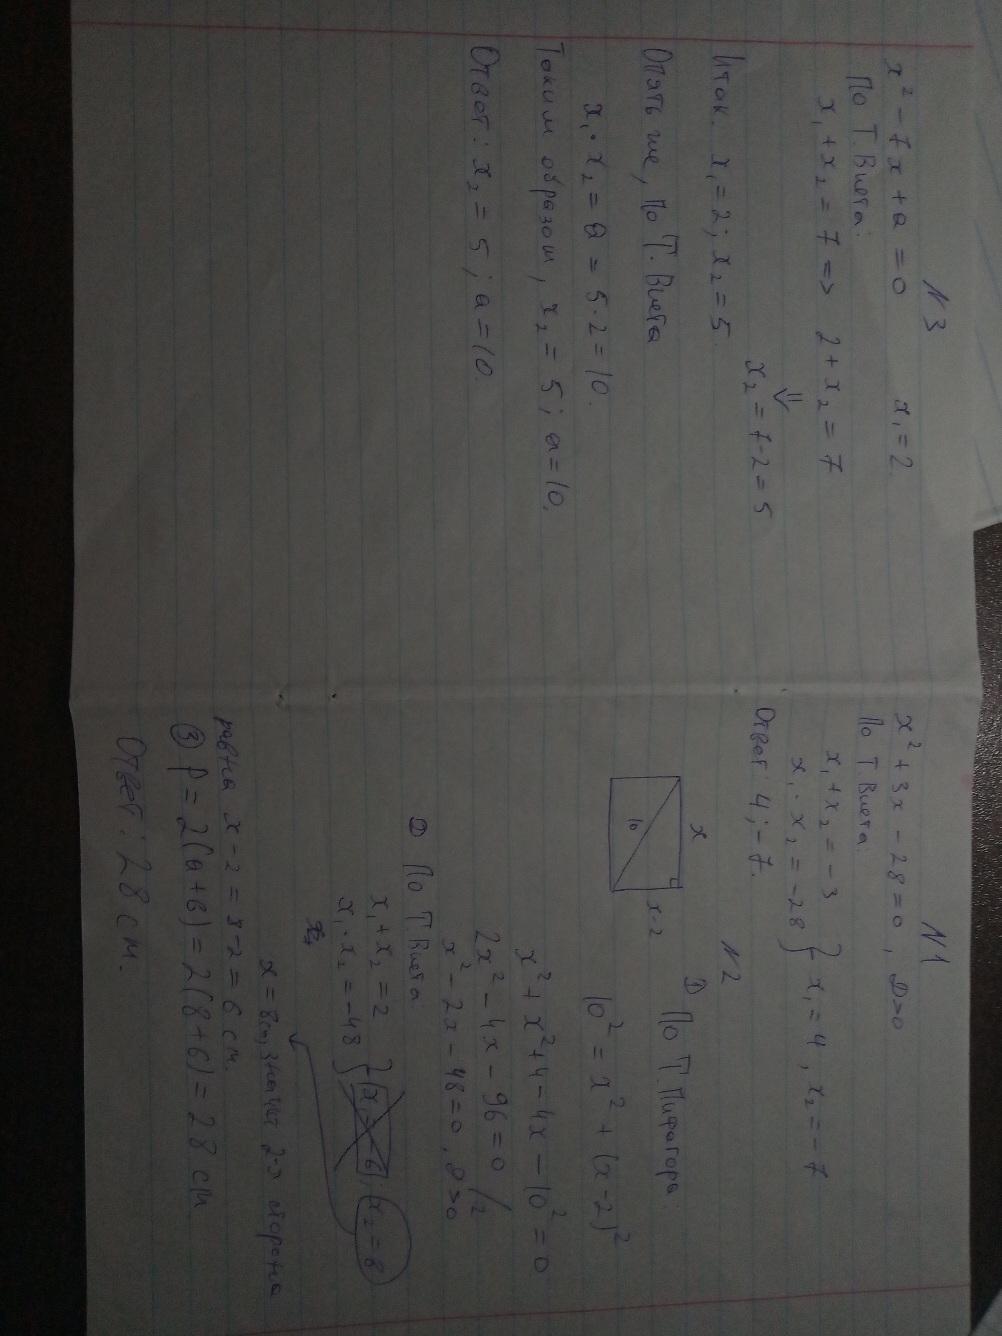 N3
x² - 7x + a = 0   x₁ = 2.
По Т. Виета:
x₁ + x₂ = 7 => 2 + x₂ = 7
⇓
x₂ = 7-2 = 5
Итак. x₁ = 2; x₂ = 5.
Опять же, по Т. Виета
x₁ · x₂ = a = 5·2 = 10.
Таким образом, x₂ = 5; a = 10.
Ответ: x₂ = 5; a = 10.
N1
x² + 3x - 28 = 0, D>0
По Т. Виета:
x₁ + x₂ = -3
x₁ · x₂ = -28 } x₁ = 4, x₂ = -7
Ответ: 4; -7.
N2
① По Т. Пифагора:
x
x-2
10
10² = x² + (x-2)²
x² + x² + 4 - 4x - 10² = 0
2x² - 4x - 96 = 0 /2
x² - 2x - 48 = 0, D>0
② По Т. Виета:
x₁ + x₂ = 2
x₁ · x₂ = -48 } x₁ = -6, x₂ = 8
x = 8см, значит 2-я сторона
равна x - 2 = 8-2 = 6 см.
③ P = 2(a+b) = 2(8+6) = 28 см
Ответ: 28 см.